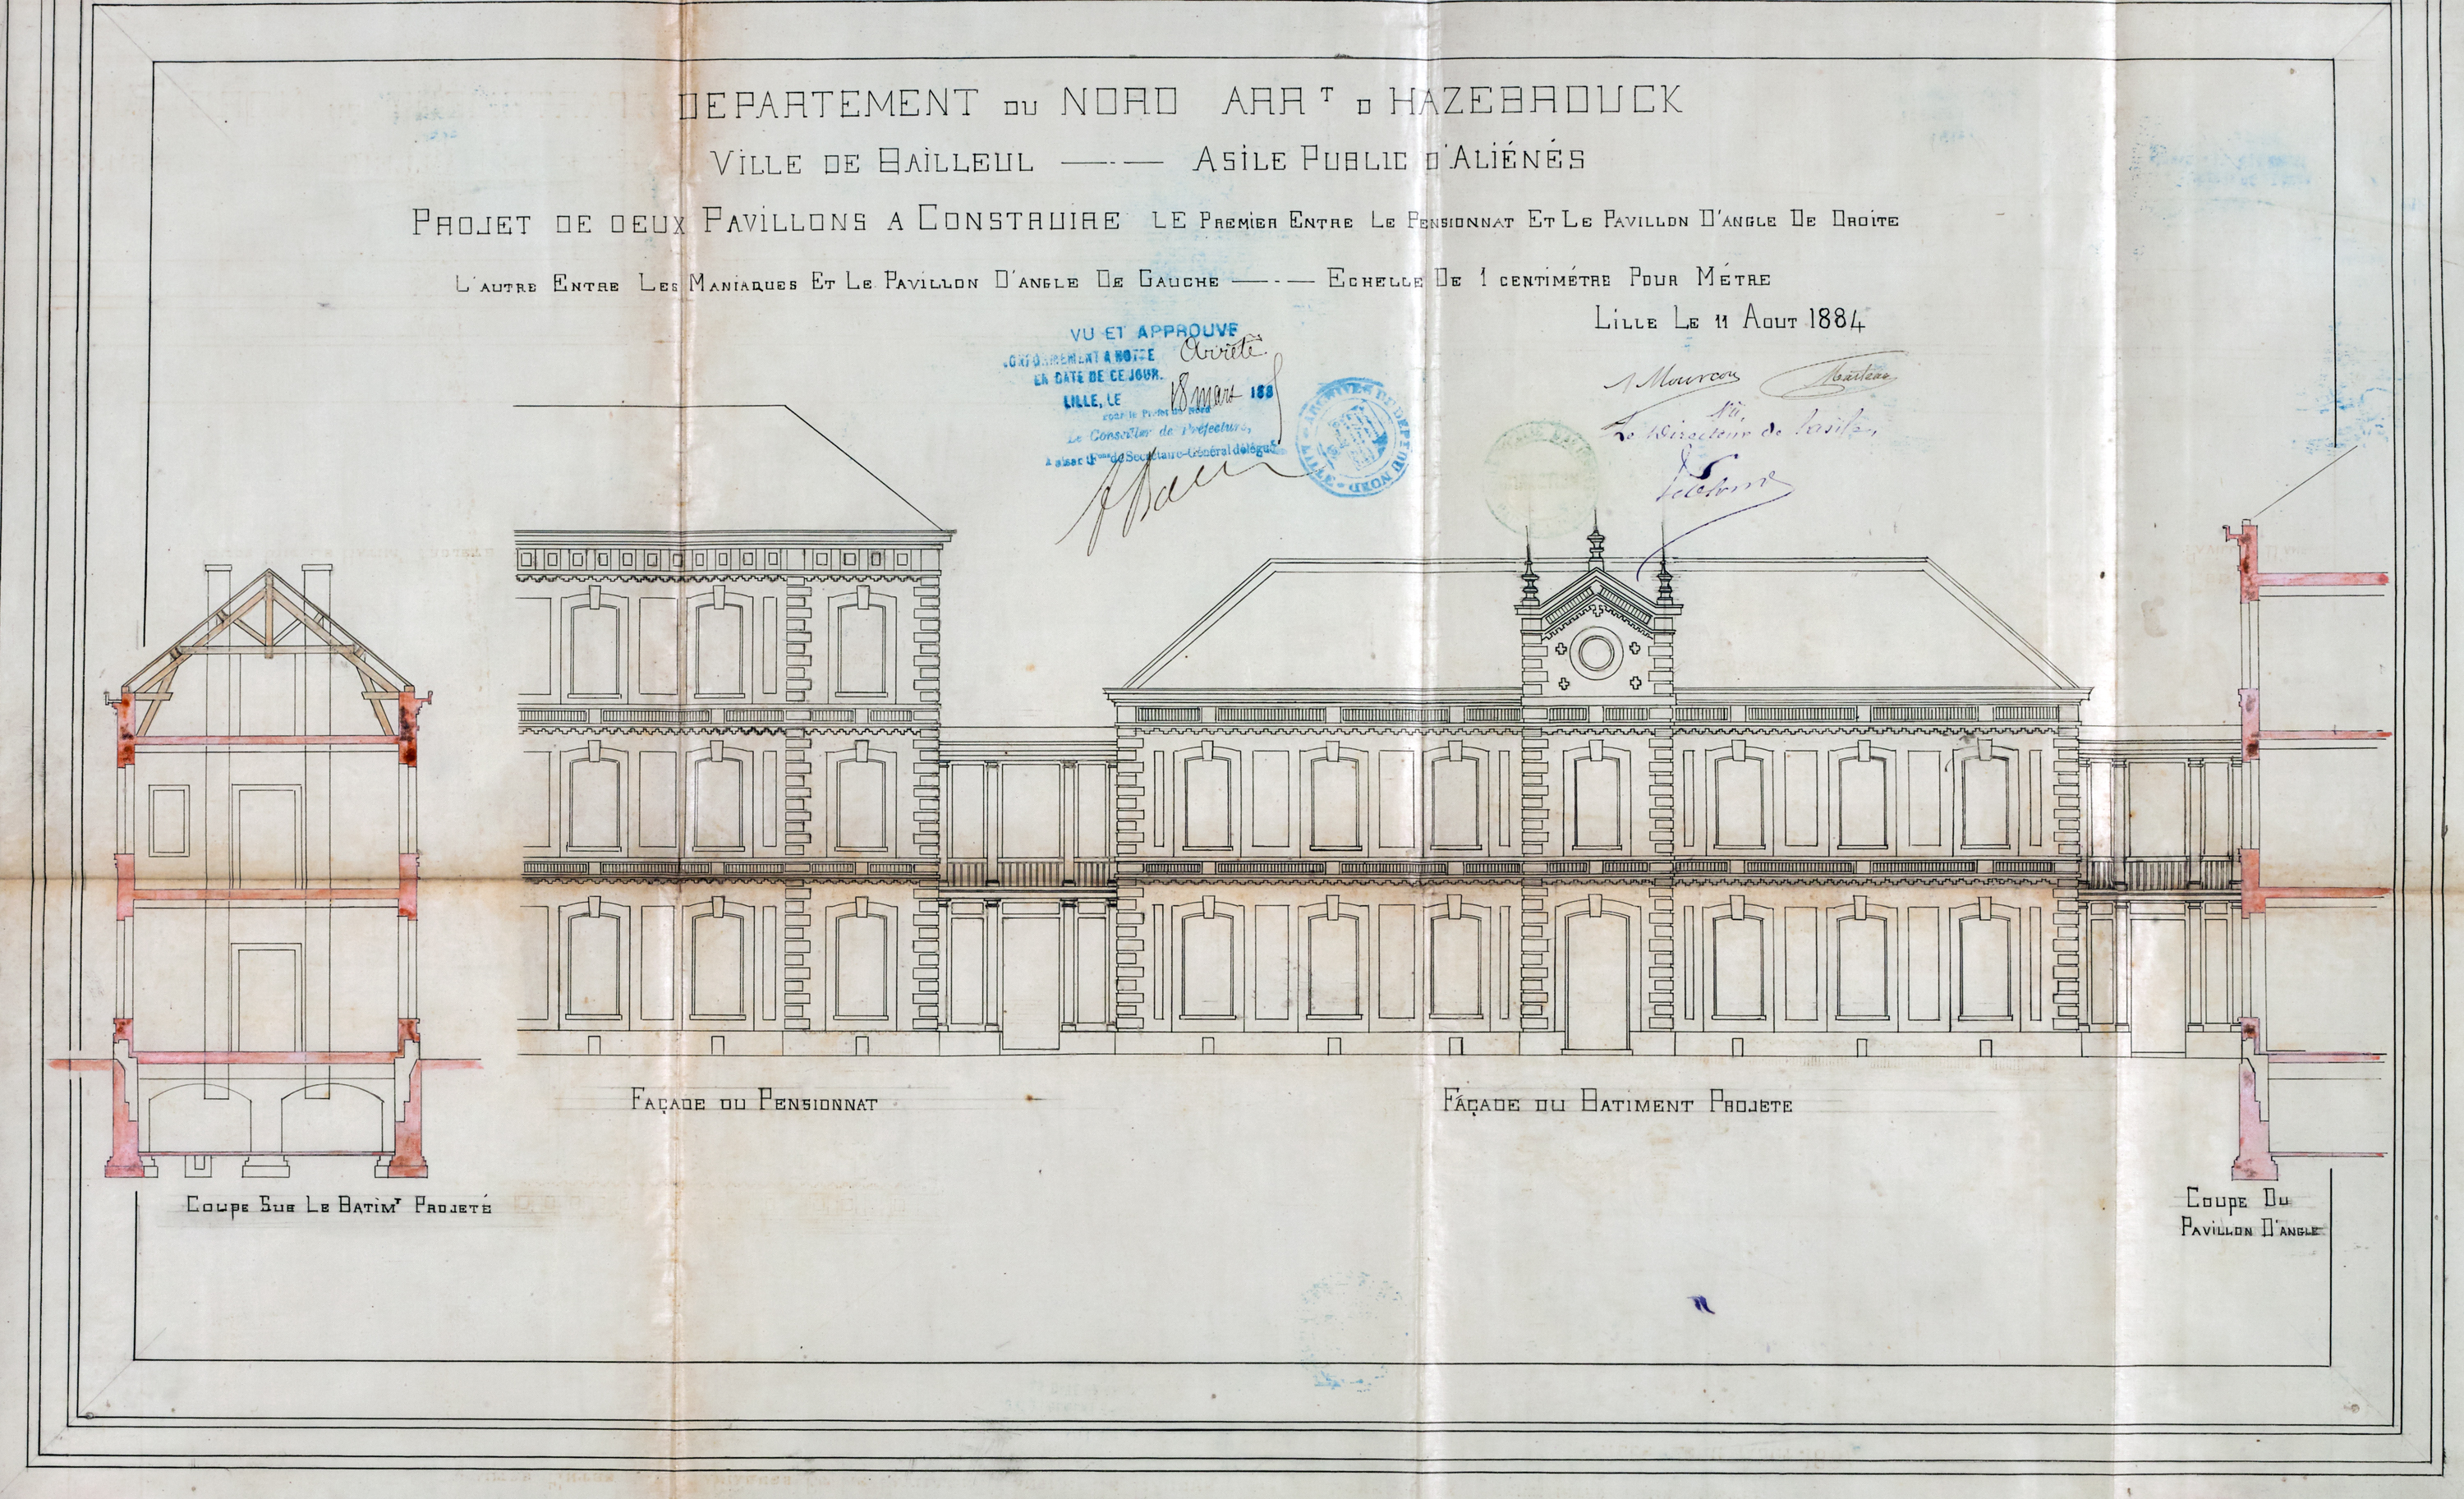 DEPARTEMENT DU NORD ARRT D HAZEBROUCK
VILLE DE BAILLEUL —·— ASILE PUBLIC D'ALIÉNÉS
PROJET DE DEUX PAVILLONS A CONSTRUIRE LE PREMIER ENTRE LE PENSIONNAT ET LE PAVILLON D'ANGLE DE DROITE
L'AUTRE ENTRE LES MANIAQUES ET LE PAVILLON D'ANGLE DE GAUCHE —·— ECHELLE DE 1 CENTIMÉTRE POUR MÉTRE
LILLE LE 11 AOUT 1884
VU ET APPROUVÉ
CONFORMEMENT A NOTRE Arrêté
EN DATE DE CE JOUR.
LILLE, LE 18 mars 188
pour le Préfet du Nord
Le Conseiller de Préfecture,
Secrétaire-Général délégué
ARCHIVES DU DEPT DU NORD
Vu,
Le Directeur de l'asile,
FAÇADE DU PENSIONNAT
FAÇADE DU BATIMENT PROJETE
COUPE SUR LE BATIMT PROJETÉ
COUPE DU
PAVILLON D'ANGLE